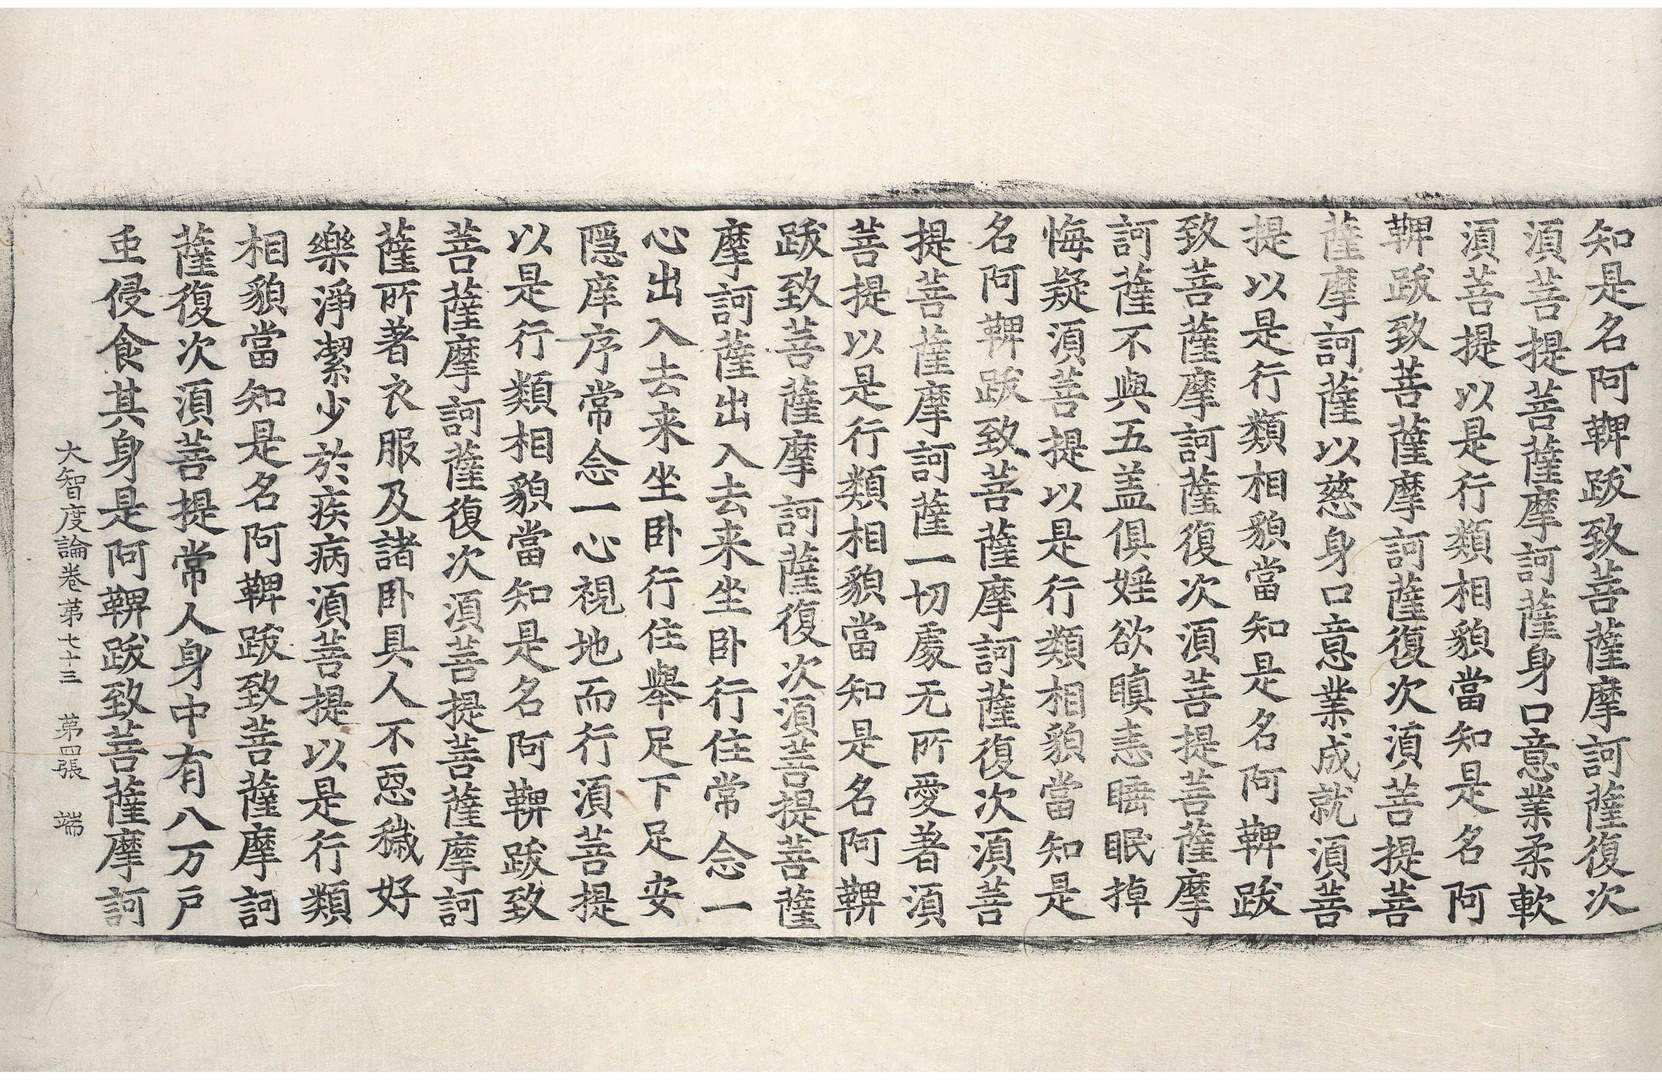 知是名阿鞞跋致菩薩摩訶薩復次
湏菩提菩薩摩訶薩身口意業柔軟
湏菩提以是行類相貌當知是名阿
鞞跋致菩薩摩訶薩復次湏菩提菩
薩摩訶薩以慈身口意業成就湏菩
提以是行類相貌當知是名阿鞞跋
致菩薩摩訶薩復次湏菩提菩薩摩
訶薩不與五盖俱婬欲瞋恚睡眠掉
悔疑湏菩提以是行類相貌當知是
名阿鞞跋致菩薩摩訶薩復次湏菩
提菩薩摩訶薩一切處无所愛著湏
菩提以是行類相貌當知是名阿鞞
跋致菩薩摩訶薩復次湏菩提菩薩
摩訶薩出入去来坐卧行住常念一
心出入去来坐卧行住舉足下足安
隠庠序常念一心視地而行湏菩提
以是行類相貌當知是名阿鞞跋致
菩薩摩訶薩復次湏菩提菩薩摩訶
薩所著衣服及諸卧具人不惡穢好
樂淨潔少於疾病湏菩提以是行類
相貌當知是名阿鞞跋致菩薩摩訶
薩復次湏菩提常人身中有八万戶
虫侵食其身是阿鞞跋致菩薩摩訶
大智度論卷第七十三 第四張 端